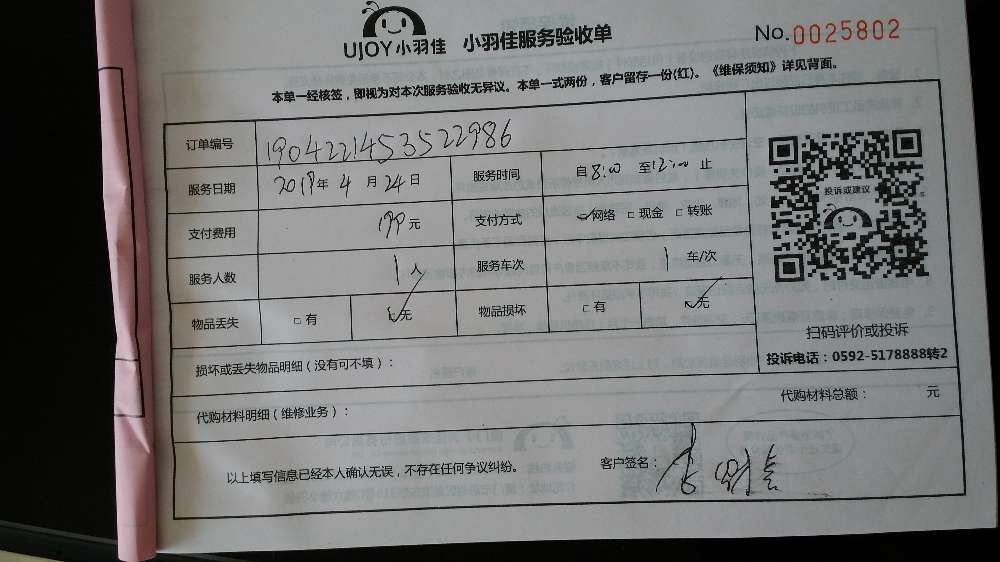 UJOY小羽佳 小羽佳服务验收单 No.0025802
本单一经核签，即视为对本次服务验收无异议。本单一式两份，客户留存一份(红)。《维保须知》详见背面。
订单编号 1904221453522986
服务日期 2019年4月24日 服务时间 自8:00至12:00止
支付费用 199元 支付方式 网络 □现金 □转账
服务人数 1人 服务车次 1车/次
物品丢失 □有 无 物品损坏 □有 无
投诉或建议
扫码评价或投诉
投诉电话：0592-5178888转2
损坏或丢失物品明细（没有可不填）：
代购材料明细（维修业务）： 代购材料总额： 元
以上填写信息已经本人确认无误，不存在任何争议纠纷。 客户签名：